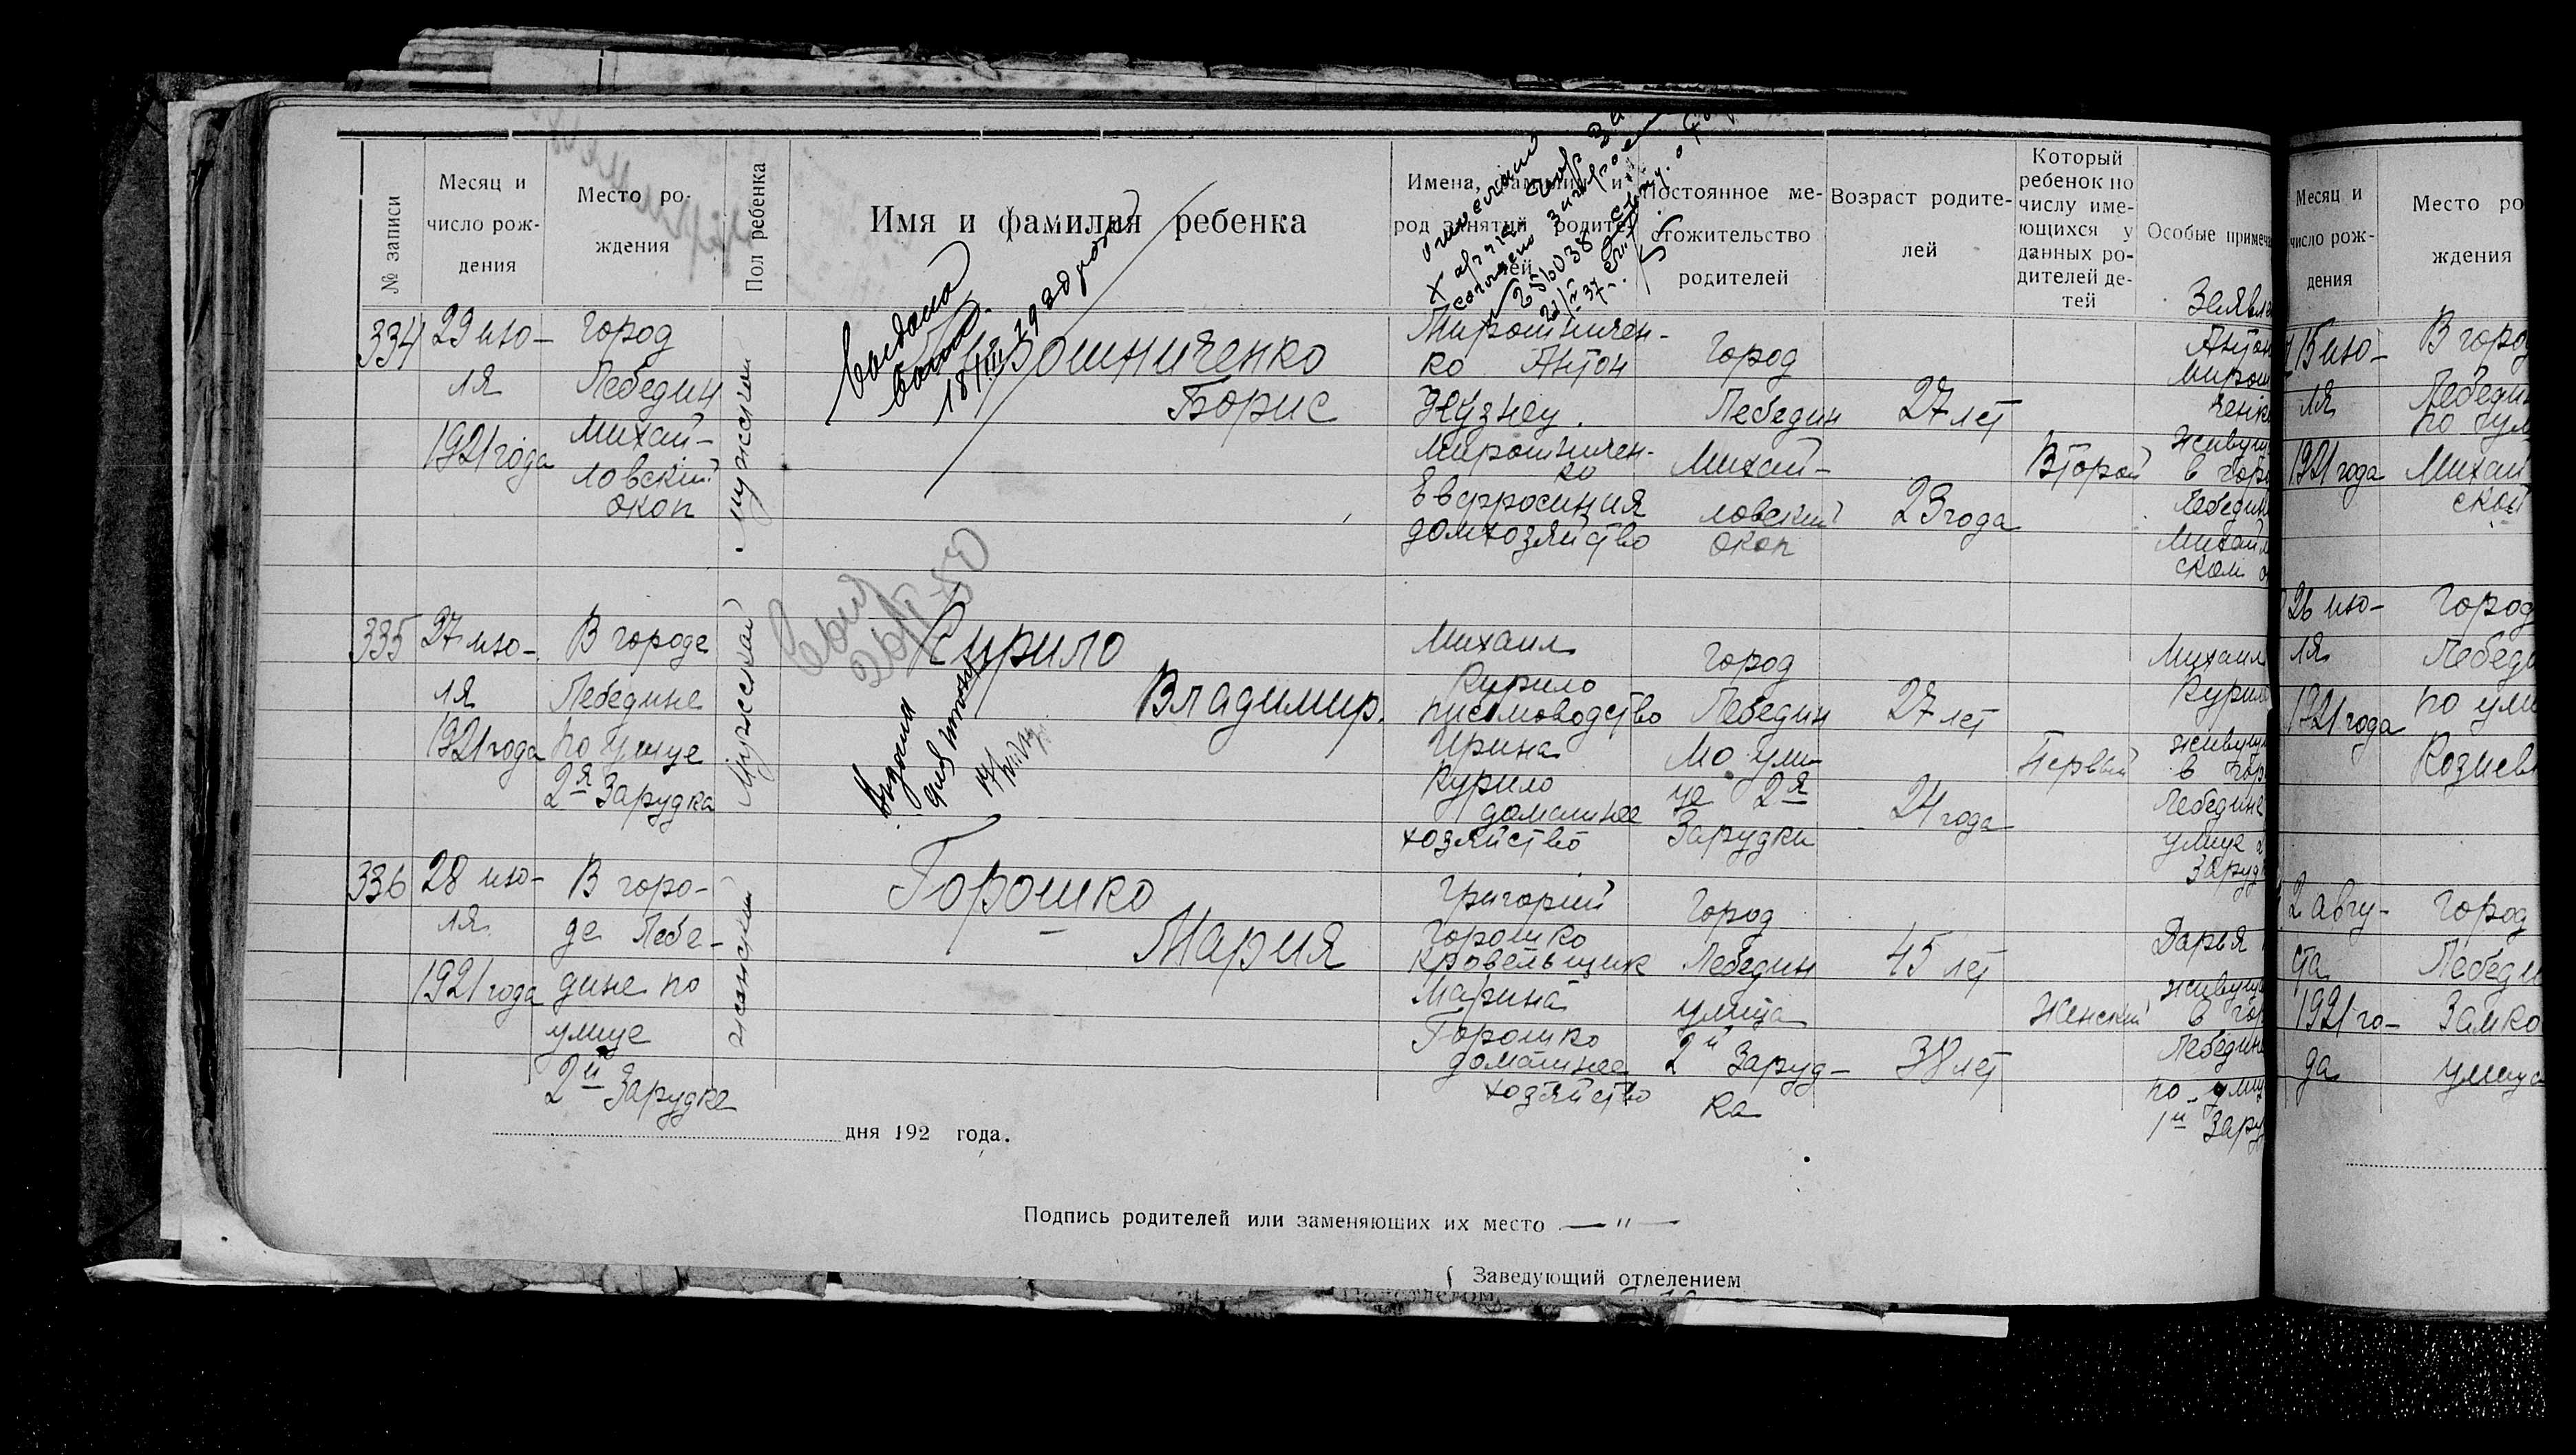 № записи
Месяц и
число рож-
дения
Место ро-
ждения
Пол ребенка
Имя и фамилия ребенка
Имена, фамилии и
род занятий родите-
лей
Постоянное ме-
стожительство
родителей
Возраст родите-
лей
Который
ребенок по
числу име-
ющихся у
данных ро-
дителей де-
тей
Особые примеча
334
29 ию-
ля
1921 года
город
Лебедин
Михай-
ловский
окоп
мужской
Мирошниченко
Борис
Мирошничен-
ко Антон
Кузнец.
Мирошничен-
ко
Евфросиния
домхозяйство
Город
Лебедин
Михай-
ловский
окоп
27 лет
23 года
Второй
Заявле
Антон
Мирош
ченко
живущ
в горо
Лебедин
Михайл
ском о
335
27 ию-
ля
1921 года
В городе
Лебедине
по улице
2я Зарудка
Мужской
Курило
Владимир.
Михаил
Курило
письмоводство
Ирина
Курило
домашнее
хозяйство
город
Лебедин
по ули-
це 2я
Зарудки
27 лет
24 года
Первый
Михаил
Курило
живущ
в гор
Лебедине
улице 2
Заруд
336
28 ию-
ля
1921 года
В горо-
де Лебе-
дине по
улице
2й Зарудке
женский
Горошко
Мария
Григорий
Горошко
Кровельщик
Марина
Горошко
домашнее
хозяйство
Город
Лебедин
улица
2й Заруд-
ка
45 лет
38 лет
Женский
Дарья
живущ
в гор
Лебедине
по улиц
1й Зару
дня 192 года.
Подпись родителей или заменяющих их место — " —
Заведующий отделением
Месяц и
число рож-
дения
Место ро
ждения
15 ию-
ля
1921 года
В город
Лебедин
по ул
Михай
ской
26 ию-
ля
1921 года
Город
Лебеди
по ули
Козиев
2 авгу-
ста
1921 го-
да
Город
Лебеди
Замко
улица